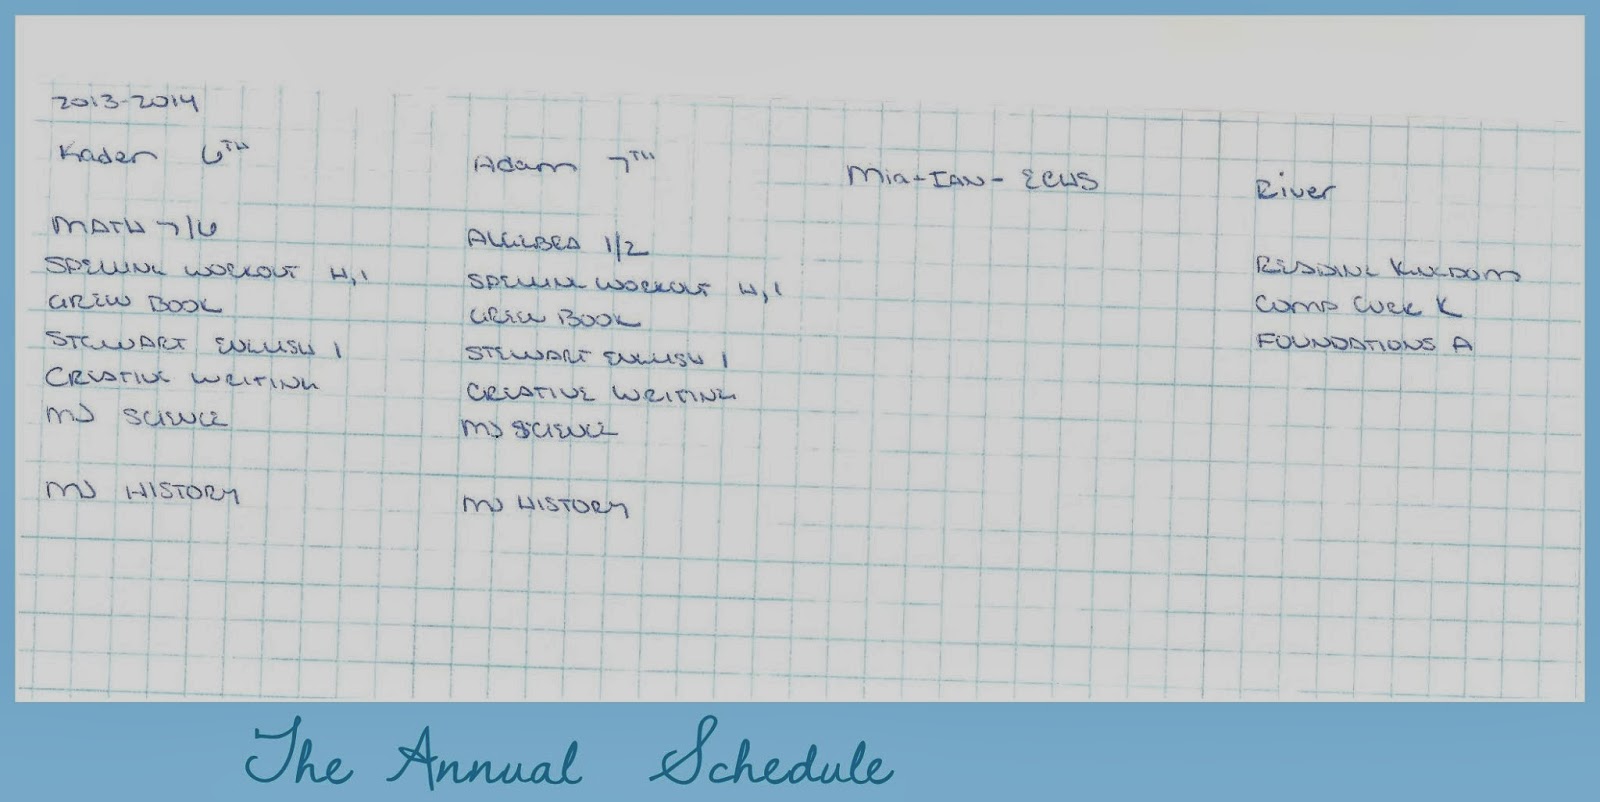 2013-2014
Kaden 6TH
MATH 7/6
SPELLING WORKOUT H, I
GREEN BOOK
STEWART ENGLISH 1
CREATIVE WRITING
MJ SCIENCE
MJ HISTORY
Adam 7TH
ALGEBRA 1/2
SPELLING WORKOUT H, I
GREEN BOOK
STEWART ENGLISH 1
CREATIVE WRITING
MJ SCIENCE
MJ HISTORY
Mia + IAN - ECHS
River
READING KINGDOM
COMP K
FOUNDATIONS A
The Annual Schedule